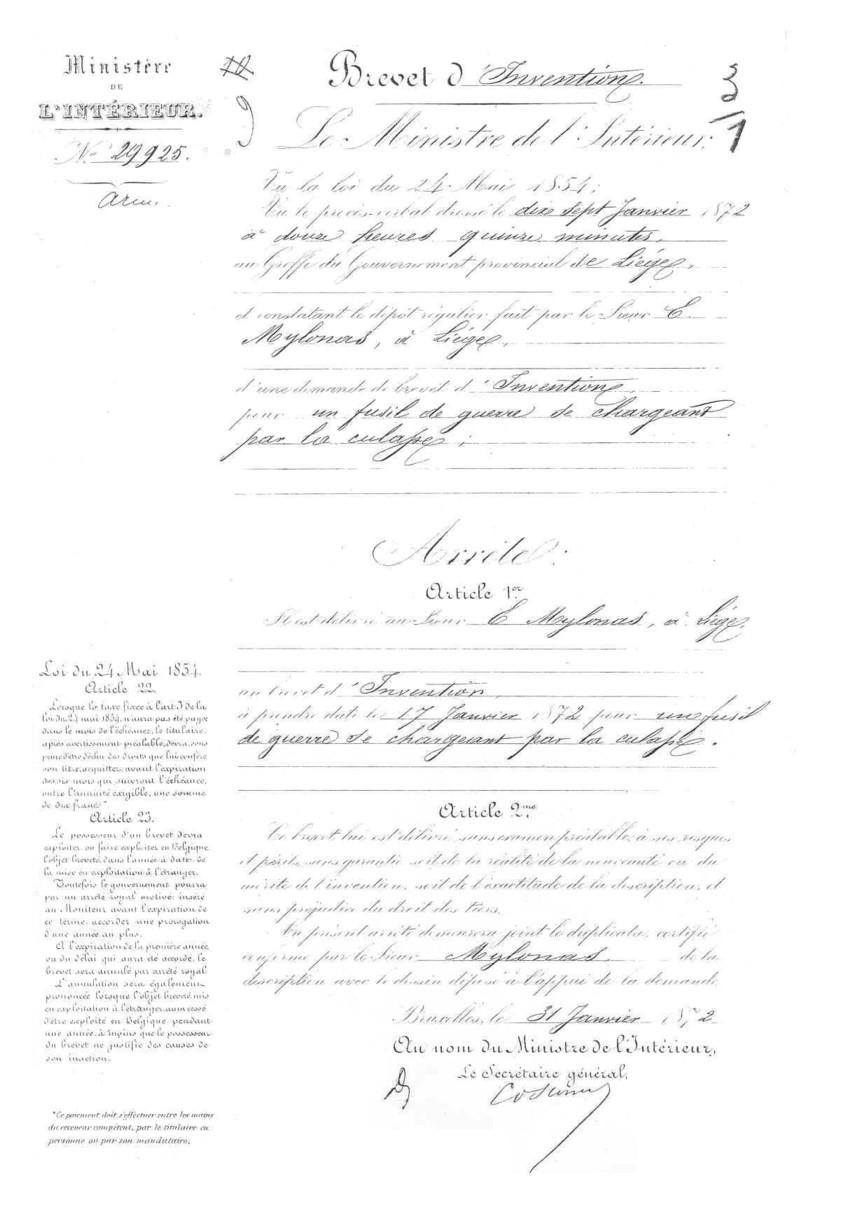 Ministère
DE
L'INTÉRIEUR.
No 29925.
Brevet d'Invention.
Le Ministre de l'Intérieur,
Vu la loi du 24 Mai 1854;
Vu le procès-verbal dressé le dix sept Janvier 1872
à douze heures quinze minutes,
au Greffe du Gouvernement provincial de Liége,
et constatant le dépôt régulier fait par le Sieur E.
Mylonas, à Liége,
d'une demande de brevet d'Invention
pour un fusil de guerre se chargeant
par la culasse;
Arrête:
Article 1er
Il est délivré au Sieur E Mylonas, à Liége,
un brevet d'Invention,
à prendre date le 17 Janvier 1872 pour un fusil
de guerre se chargeant par la culasse.
Article 2me
Ce brevet lui est délivré sans examen préalable, à ses risques
et périls, sans garantie soit de la réalité de la nouveauté ou du
mérite de l'invention, soit de l'exactitude de la description, et
sans préjudice du droit des tiers.
Au présent arrêté demeurera joint le duplicata, certifié
conforme par le Sieur Mylonas de la
description avec le dessin déposé à l'appui de la demande.
Bruxelles, le 31 Janvier 1872
Au nom du Ministre de l'Intérieur,
Le Secrétaire général,
Loi du 24 Mai 1854.
Article 22.
Lorsque la taxe fixée à l'art 3 de la
loi du 24 mai 1854, n'aura pas été payée
dans le mois de l'échéance, le titulaire,
après avertissement préalable, devra, sous
peine d'être déchu des droits que lui confère
son titre, acquitter, avant l'expiration
des six mois qui suivront l'échéance,
outre l'annuité exigible, une somme
de dix francs*
Article 23.
Le possesseur d'un brevet devra
exploiter, ou faire exploiter en Belgique,
l'objet breveté, dans l'année à dater de
la mise en exploitation à l'étranger.
Toutefois le gouvernement pourra
par un arrêté royal motivé, inséré
au Moniteur avant l'expiration de
ce terme, accorder une prorogation
d'une année au plus.
A l'expiration de la première année
ou du délai qui aura été accordé, le
brevet sera annulé par arrêté royal
L'annulation sera également
prononcée lorsque l'objet breveté, mis
en exploitation à l'étranger, aura cessé
d'être exploité en Belgique pendant
une année, à moins que le possesseur
du brevet ne justifie des causes de
son inaction.
*Ce paiement doit s'effectuer entre les mains
du receveur compétent, par le titulaire en
personne ou par son mandataire.